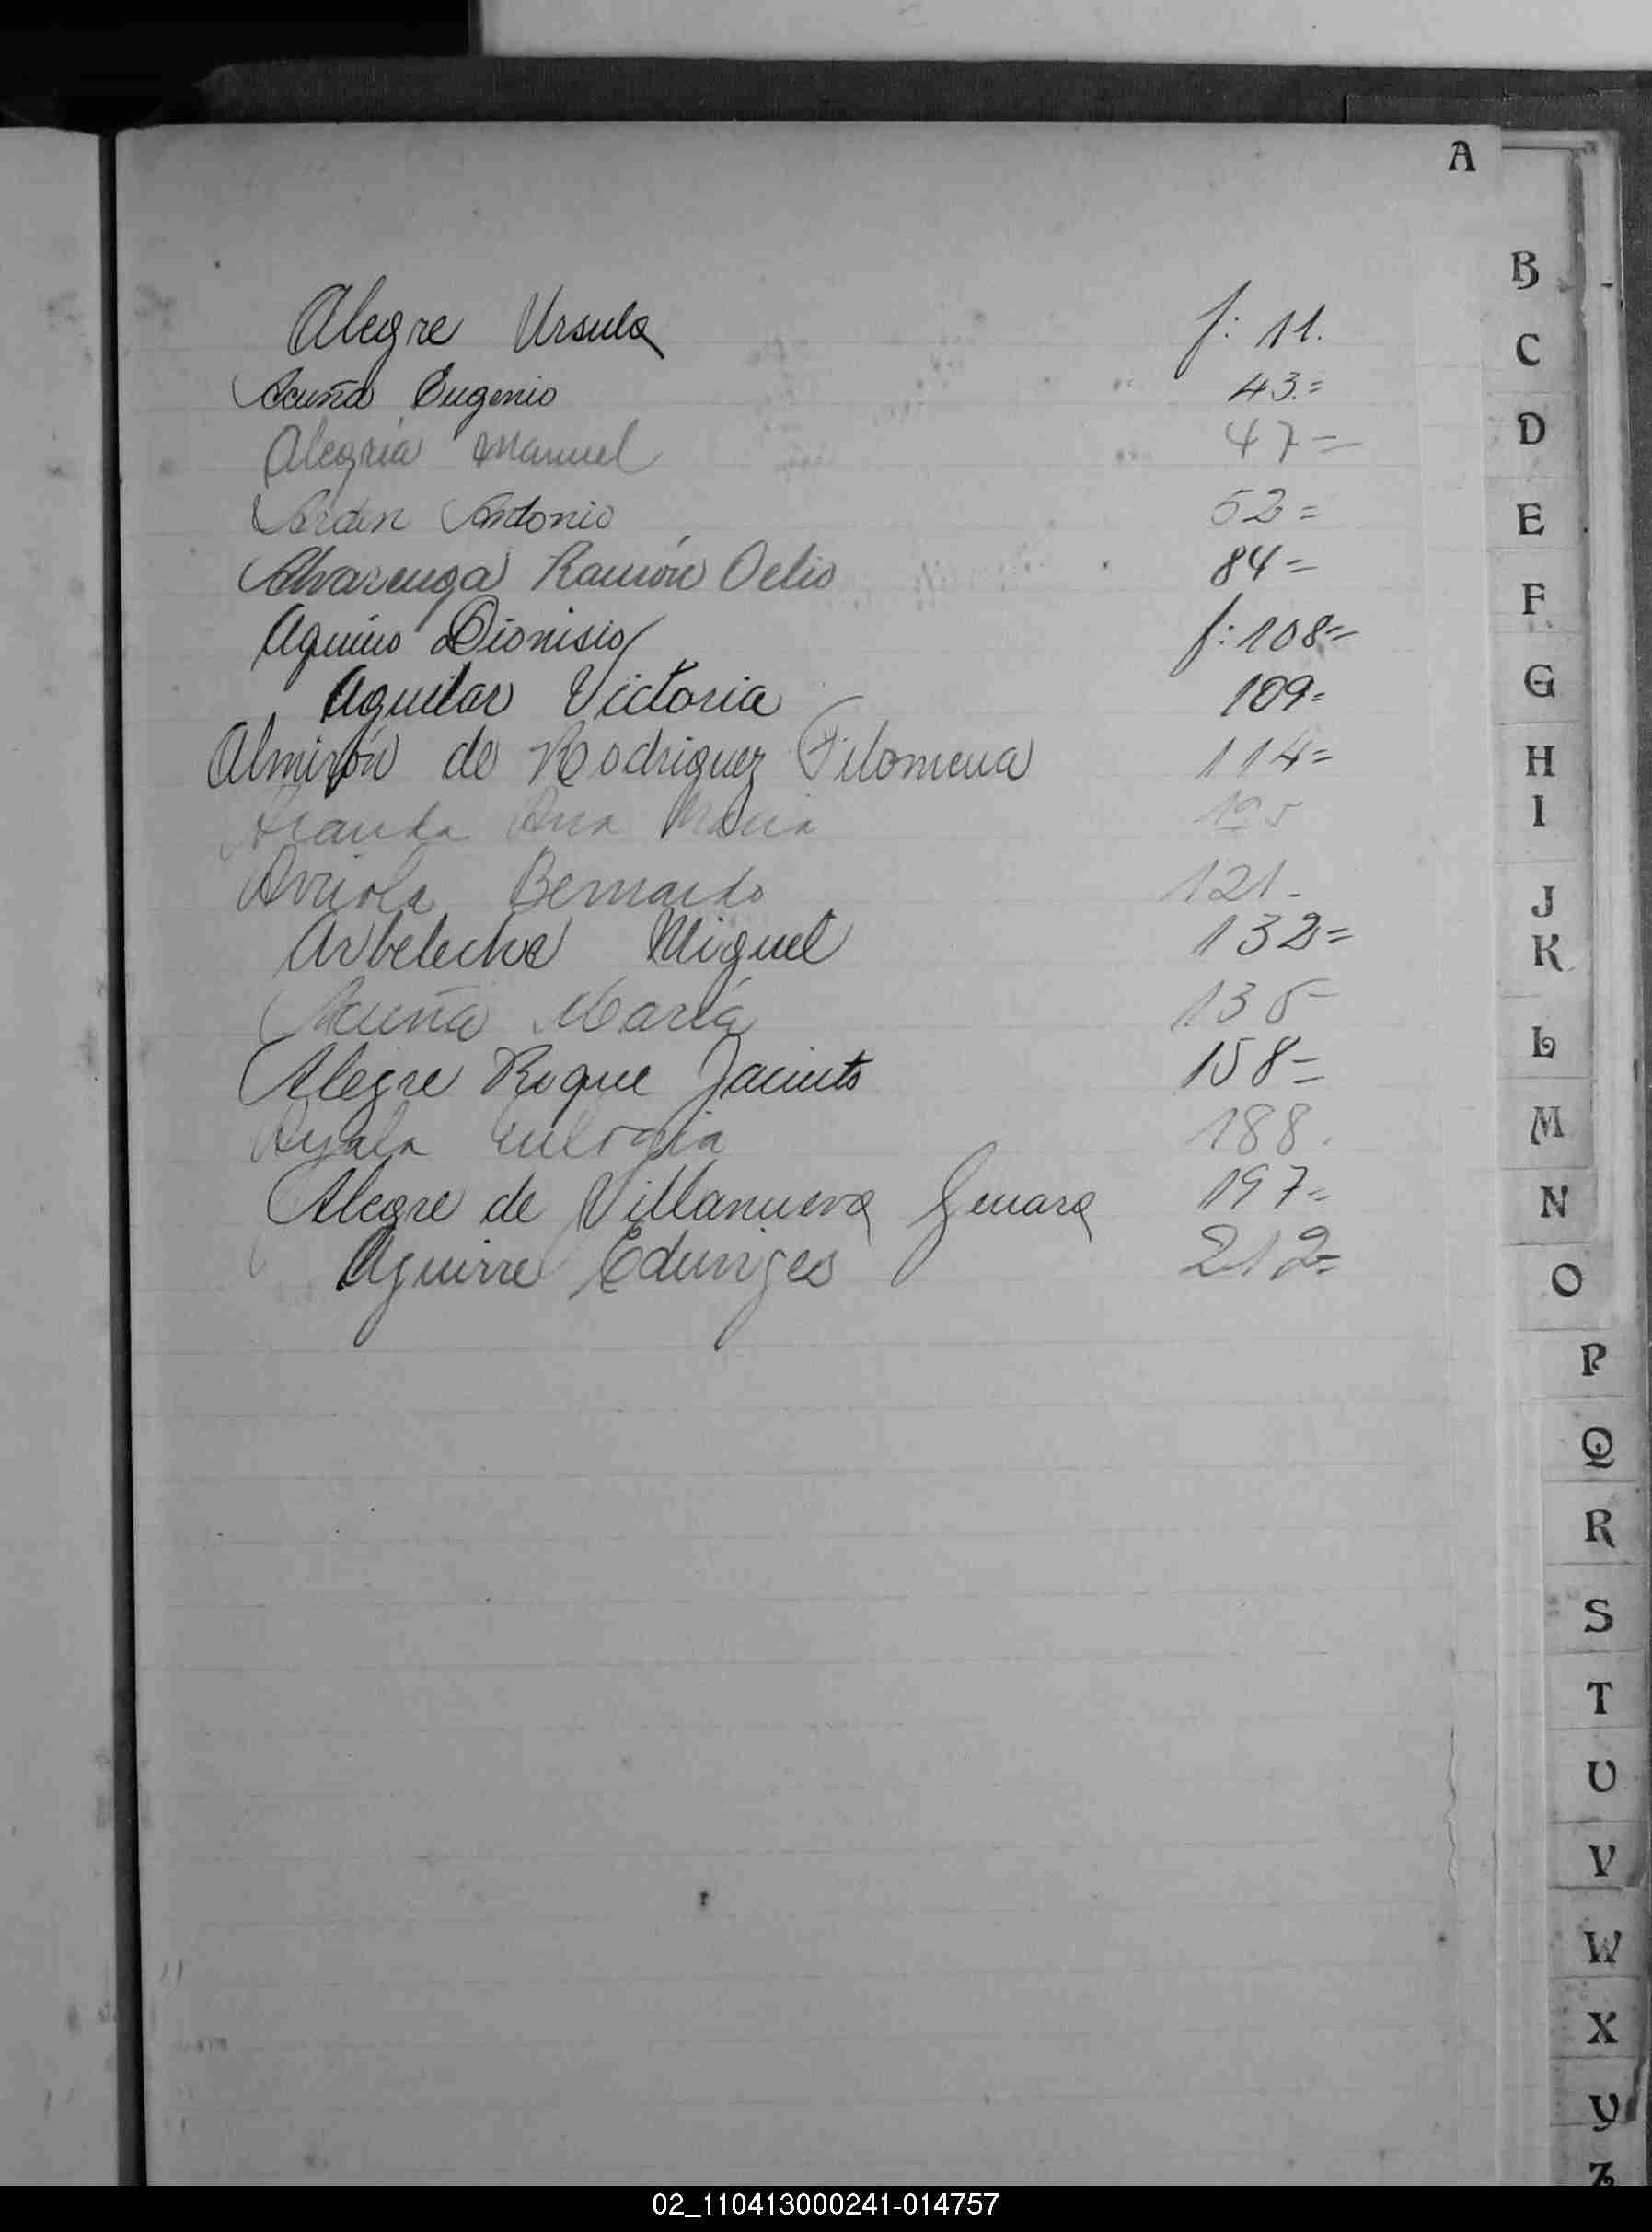 A
Alegre Ursula f: 11.
Acuña Eugenio 43.=
Alegria Manuel 47=
Arden Antonio 52=
Alvarenga Ramón Delio 84=
Aquino Dionisio f: 108=
Aguilar Victoria 109=
Almirón de Rodriguez Filomena 114=
Aranda Ana Maria
Arriola Bernardo 121-
Arbeleche Miguel 132=
Acuña María 135
Alegre Roque Jacinto 158=
Ayala Eulogia 188.
Alegre de Villanueva Genara 197=
Aguirre Eduviges 212=
B
C
D
E
F
G
H
I
J
K
L
M
N
O
P
Q
R
S
T
U
V
W
X
Y
Z
02_110413000241-014757